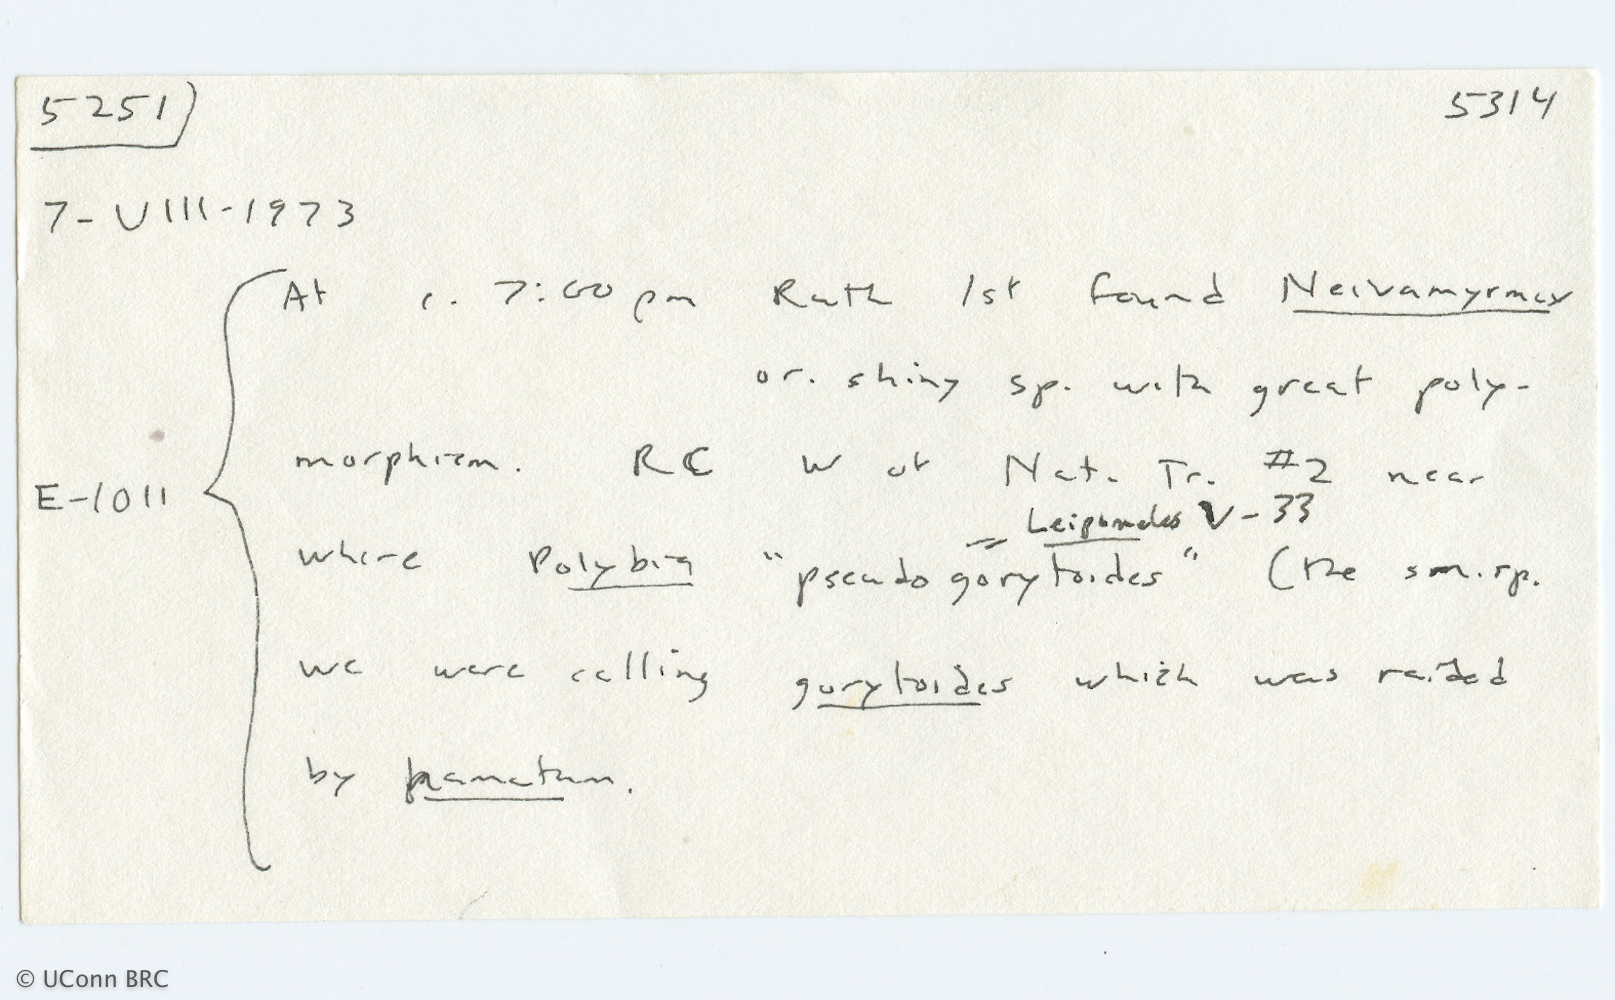 5251 5314
7-VIII-1973
At c. 7:00 pm Ruth 1st found Neivamyrmex
or. shiny sp. with great poly-
morphism. RC W of Nat. Tr. #2 near
= Leipomeles V-33
E-1011
where Polybia "pseudogorytoides" (the sm. sp.
we were calling gorytoides which was raided
by hamatum.
© UConn BRC